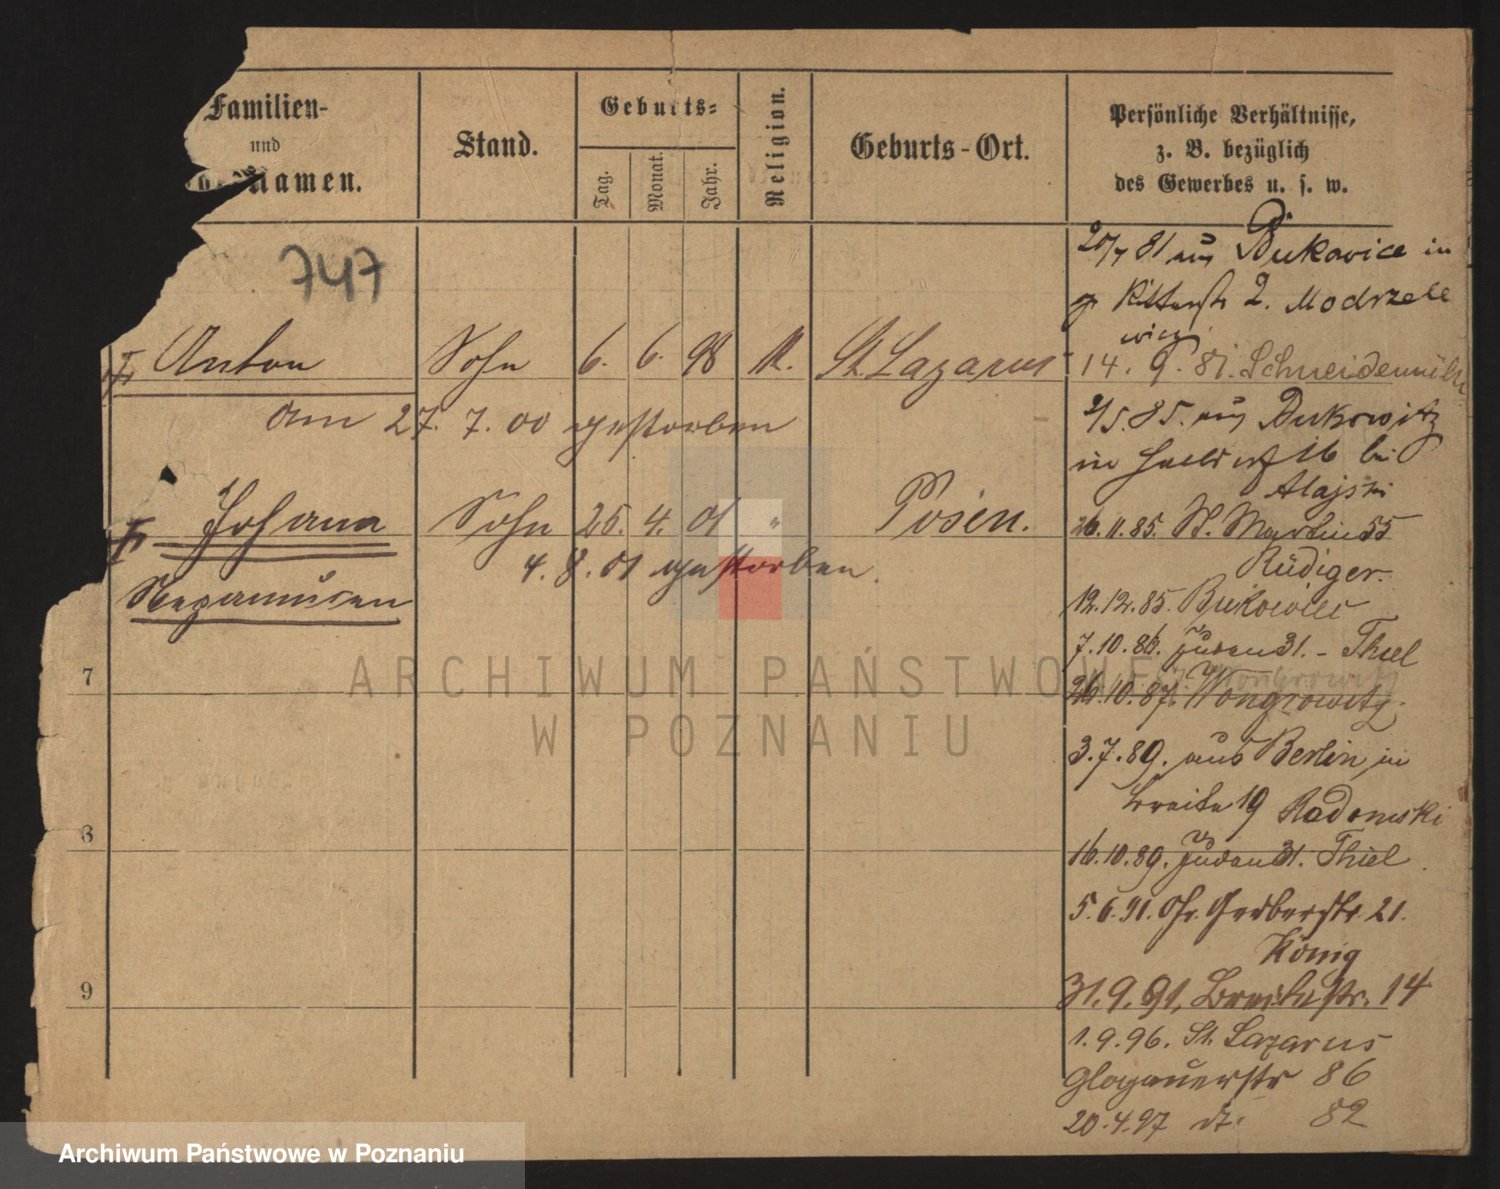 Familien-
und
Namen.
Stand.
Geburts=
Tag.
Monat.
Jahr.
Religion.
Geburts-Ort.
Persönliche Verhältnisse,
z. B. bezüglich
des Gewerbes u. s. w.
747
20/7 81 aus Bukovice in
Ritterstr 2. Modrzele
wicz
Anton Sohn 6. 6. 98 K. St. Lazarus
14. 9. 81. Schneidemühl
am 27. 7. 00 gestorben
2/5. 85. aus Bukowitz
in 16 bei
Alajski
Johann Sohn 25. 4. 01 " Posen.
26. 11. 85. St. Martin 55
Rüdiger.
4. 8. 01 gestorben.
Nepomucen
12. 12. 85. Bukowiec
7. 10. 86. Juden 31. - Thiel
7
Wongrowitz
26. 10. 87. Wongrowitz.
3. 7. 89. aus Berlin in
Breite 19 Radomski
8
16. 10. 89. Juden 31. Thiel
5. 6. 91. Gr. Gerberstr. 21.
König
9
31. 9. 91. Breitestr. 14
1. 9. 96. St. Lazarus
Glogauerstr 86
20. 4. 97 dt. 82
ARCHIWUM PAŃSTWOWE
W POZNANIU
Archiwum Państwowe w Poznaniu